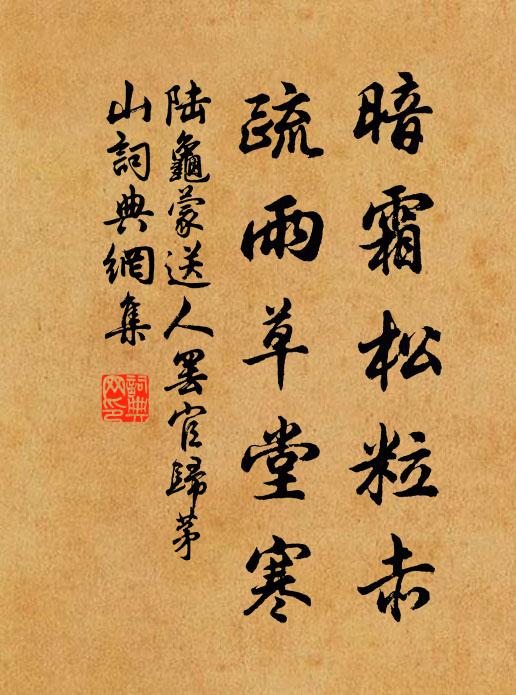 暗霜松粒赤
疏雨草堂寒
陆龜蒙送人罢官歸茅
山詞典網集
詞典
网印